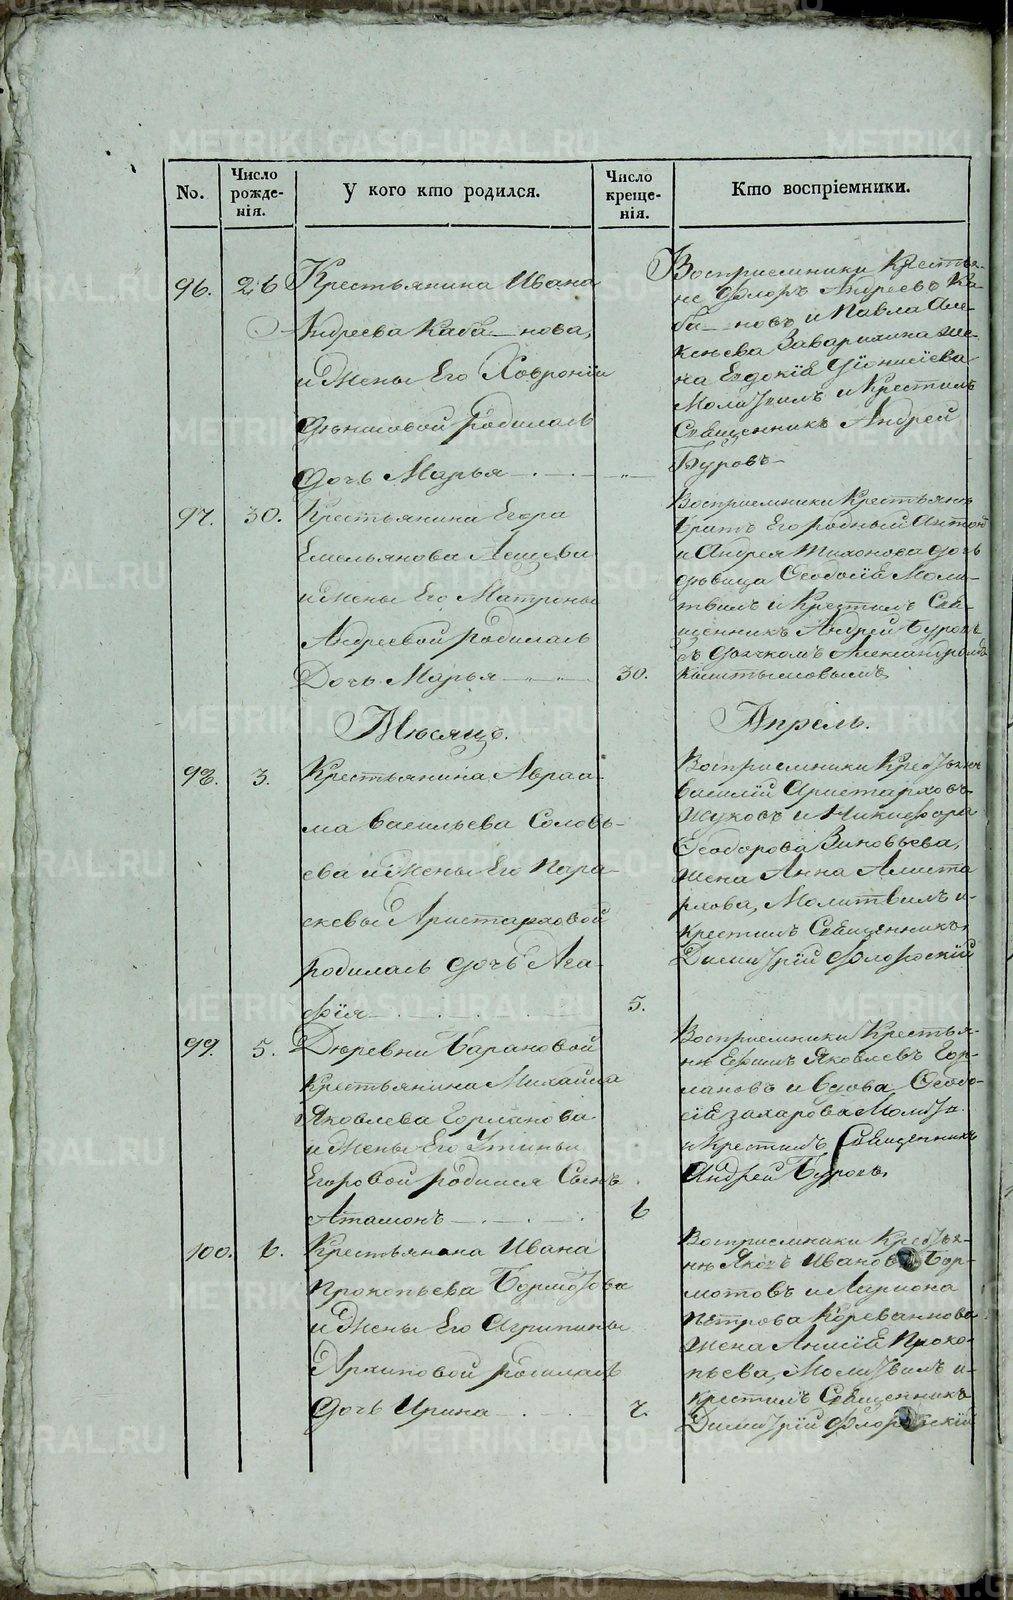 No.
Число рожде-нія.
У кого кто родился.
Число креще-нія.
Кто воспріемники.
96.
26
Крестьянина Ивана
Андреева Каба-нова,
и жены Его Ховроніи
родилась
дочь Марья
Восприемники Крестья-
не Флоръ Андреевъ Ка-
ба-новъ и Павла Але-
ксеева Заварихина же-
на Евдокія Діонисіева
Молитвилъ и Крестилъ
Священникъ Андрей
Буровъ
97.
30.
Крестьянина Егора
Емельянова
и жены Его Матроны
Андреевой родилась
Дочь Марья
30.
Восприемники Крестьянъ
братъ Его родный Антонъ
и Андрея Тихонова дочь
девица Феодосія Моли-
твилъ и Крестилъ Свя-
щенникъ Андрей Буровъ
съ дьячкомъ Александромъ
Кыштымовымъ
Месяцъ.
Апрель.
98.
3.
Крестьянина Авраа-
ма Васильева Соловь-
ева и жены Его Пара-
скевы Аристарховой
родилась дочь Ага-
фія
5.
Восприемники Крестьяни
Василій Аристарховъ
Жуковъ и Никифора
Феодорова Зиновьева,
жена Анна Алиста
рхова, Молитвилъ и
крестилъ Священникъ
Димитрій Флоровскій
99.
5.
Деревни Барановой
Крестьянина Михайла
Яковлева Горланова
и жены Его Устиньи
Егоровой родился Сынъ
Атамонъ
6
Восприемники Крестья-
не Ефимъ Яковлевъ Гор-
лановъ и вдова Феодо-
сія Захарова Молит.
и крестилъ Священникъ
Андрей Буровъ
100.
6.
Крестьянина Ивана
Прокопьева Бормотова
и жены Его Агрипины
Архиповой родилась
дочь Ирина
7.
Восприемники Крестья-
не Яковъ Ивановъ Бор-
мотовъ и Лариона
Петрова Кореванова
жена Анисія Проко-
пьева, Молитвилъ и
крестилъ Священникъ
Димитрій Флоровскій
METRIKI.GASO-URAL.RU